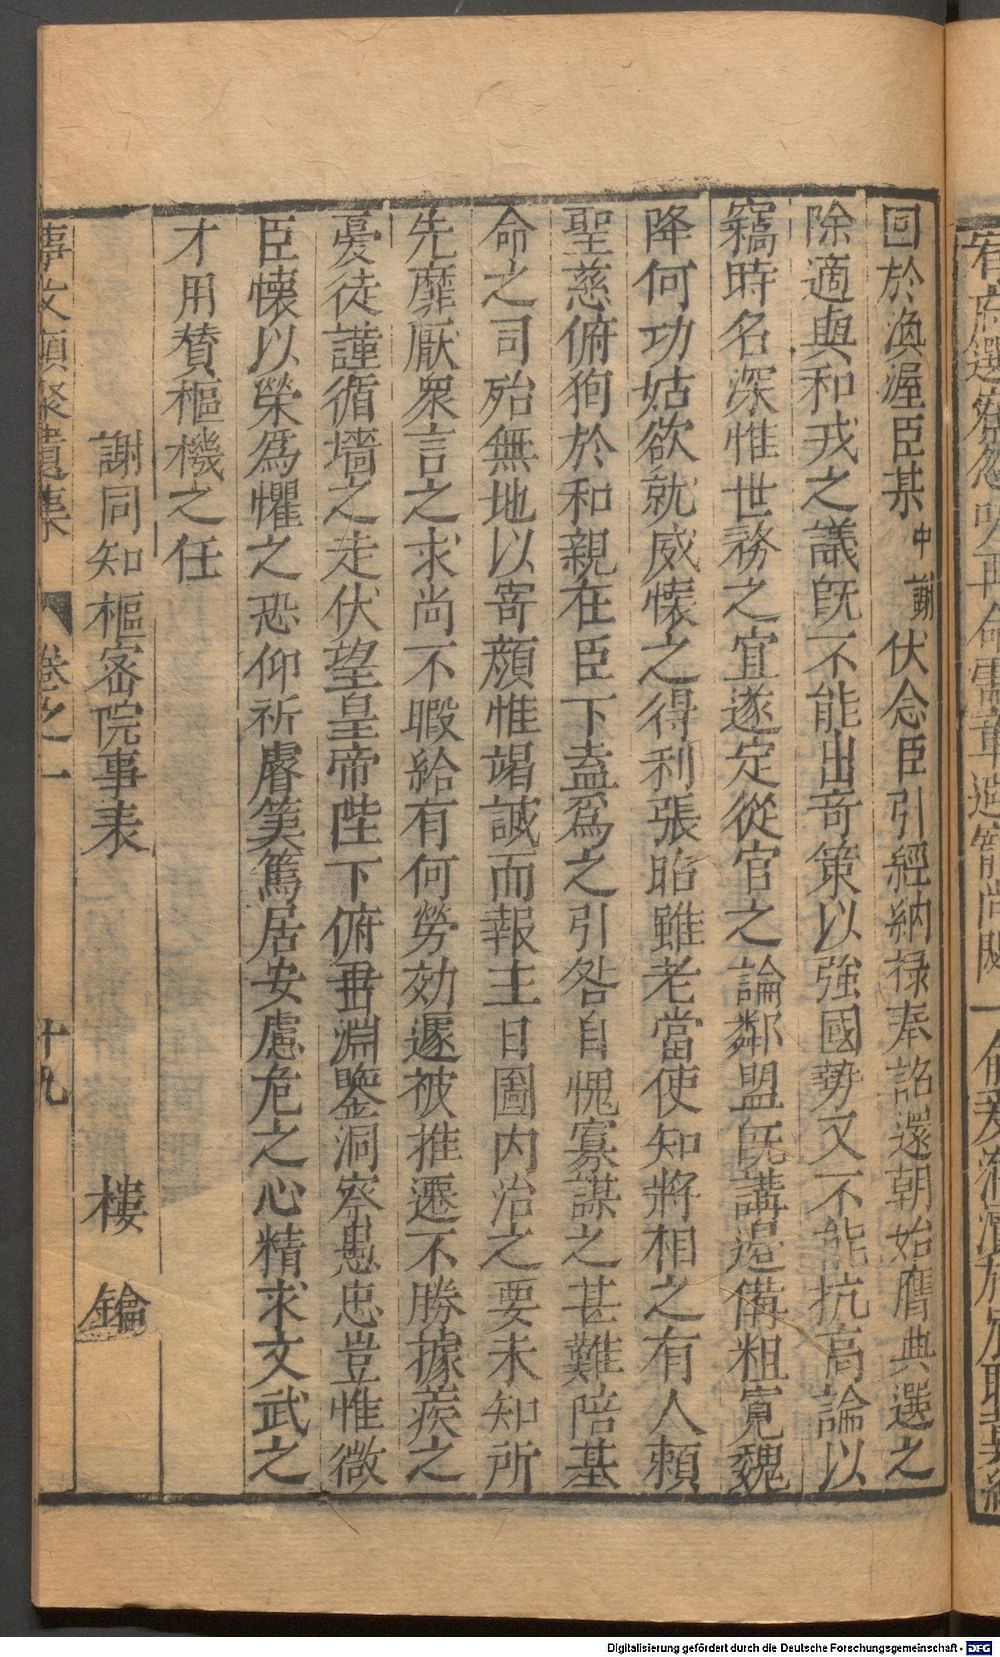 回於渙渥臣某中謝伏念臣引經納祿奉詔還朝始膺典選之
除適與和戎之議旣不能出奇策以強國勢又不能抗高論以
竊時名深惟世務之宜遂定從官之論鄰盟旣講邊備粗寬魏
降何功姑欲就威懷之得利張昭雖老當使知將相之有人賴
聖慈俯狥於和親在臣下盍爲之引咎自愧寡謀之甚難陪基
命之司殆無地以寄顏惟竭誠而報主日圖內治之要未知所
先靡厭衆言之求尚不暇給有何勞効遽被推遷不勝據蒺之
憂徒謹循墻之走伏望皇帝陛下俯垂淵鑒洞察愚忠豈惟微
臣懷以榮爲懼之恐仰祈睿筭篤居安慮危之心精求文武之
才用贊樞機之任
謝同知樞密院事表 樓鑰
事文類聚遺集 卷之一 十九
Digitalisierung gefördert durch die Deutsche Forschungsgemeinschaft - DFG